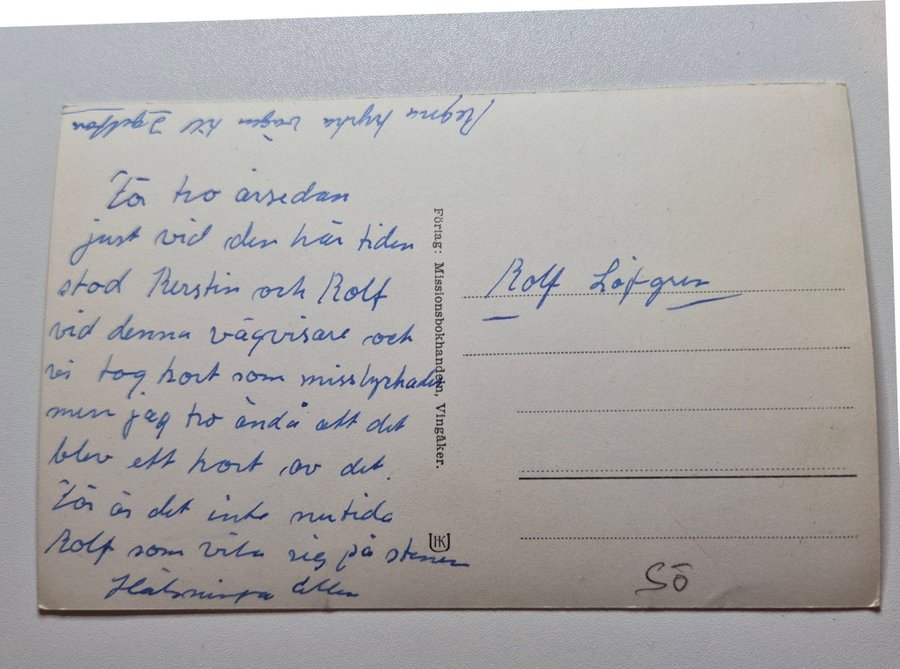 Regna kyrka vägen till Igelfors
För två årsedan
just vid den här tiden
stod Kerstin och Rolf
vid denna vägvisare och
vi tog kort som misslyckades
men jag tro ändå att det
blev ett kort av det.
För är det inte nutida
Rolf som vila sig på stenen
Hälsninga Ellen
Förlag: Missionsbokhandeln, Vingåker.
HK
Rolf Löfgren
SÖ